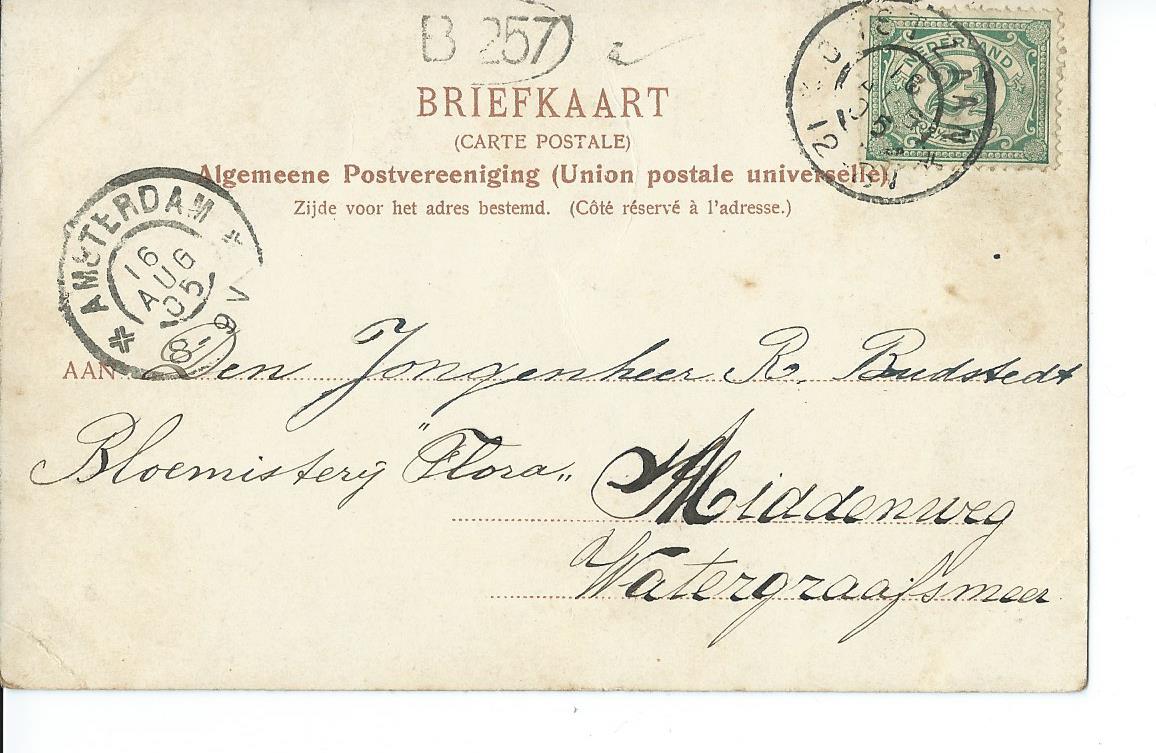 B 257
BRIEFKAART
(CARTE POSTALE)
Algemeene Postvereeniging (Union postale universelle)
Zijde voor het adres bestemd. (Côté réservé à l'adresse.)
NEDERLAND
AMSTERDAM
16
AUG
05
8-9 V
AAN Den Jongenheer R. Budstedt
Bloemisterij "Flora„ Middenweg
Watergraafsmeer